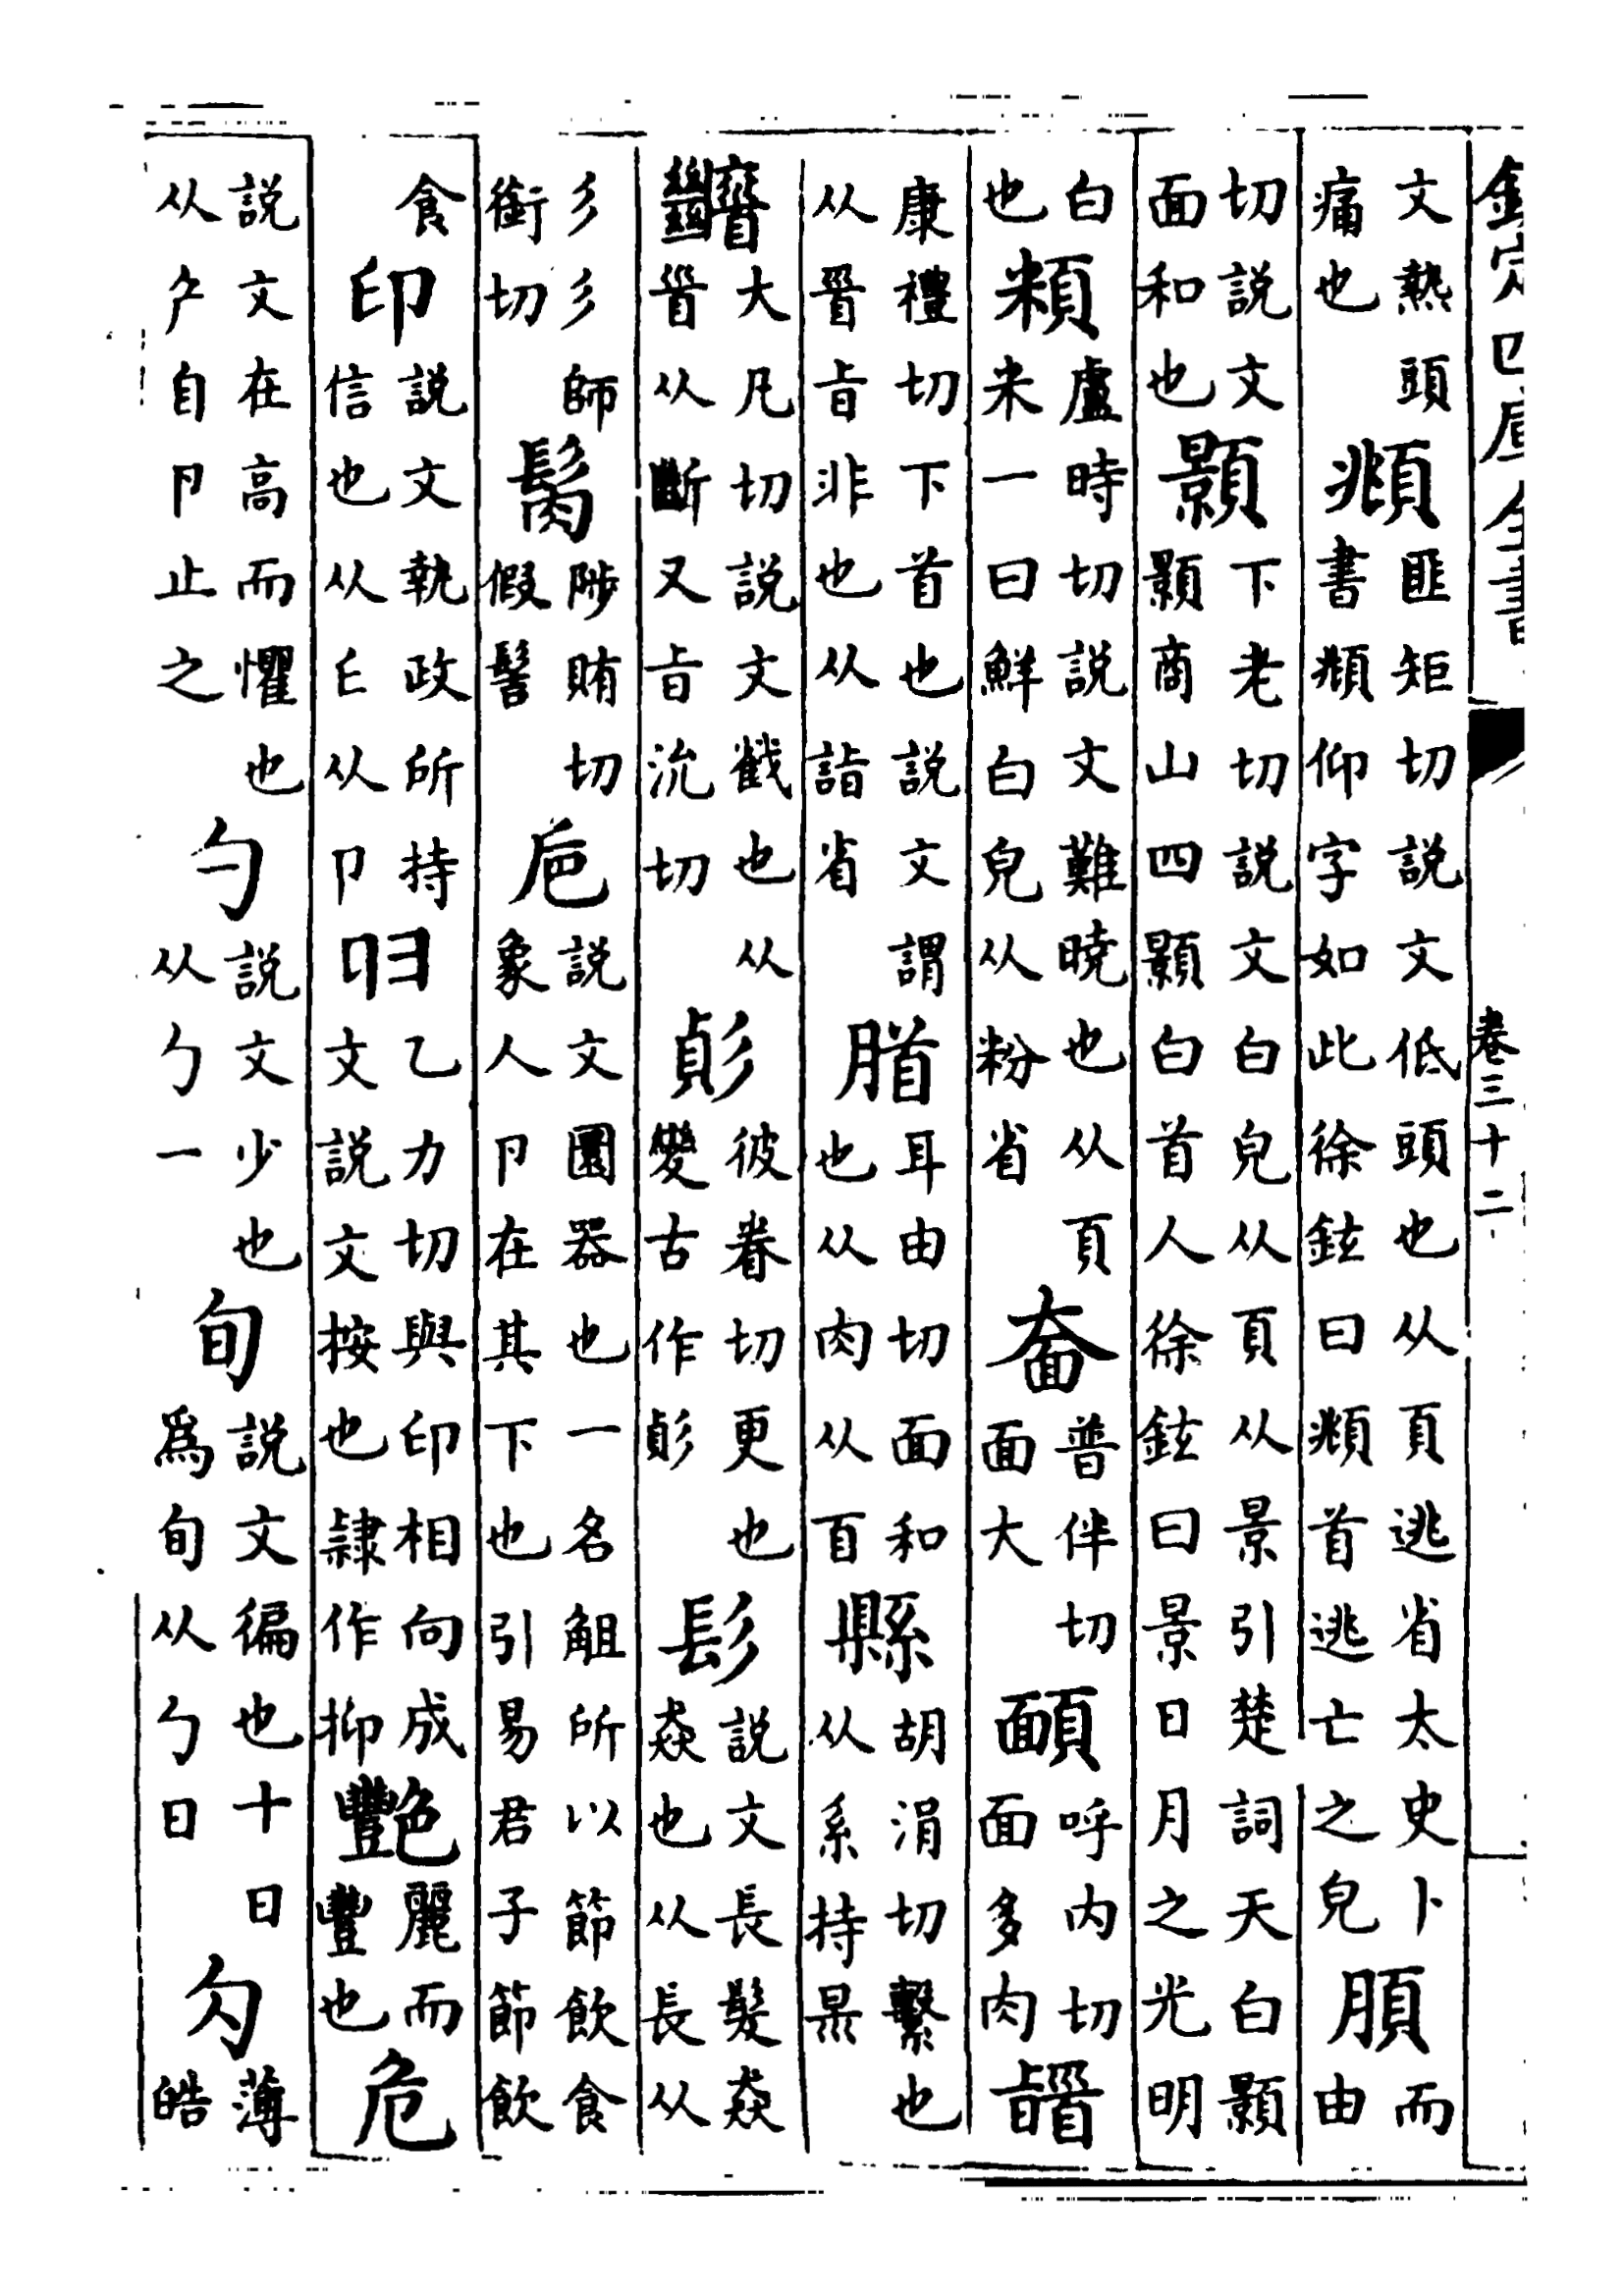 欽定四庫全書 卷三十二
文熱頭痛也 頫匪矩切説文低頭也从頁逃省太史卜書頫仰字如此徐鉉曰頫首逃亡之皃 䏔而由
切説文面和也 顥下老切説文白皃从頁从景引楚詞天白顥顥商山四顥白首人徐鉉曰景日月之光明
白 頪盧時切説文難曉也从頁米一曰鮮白皃从粉省 奤普伴切面大 顊呼内切面多肉 䭫
康禮切下首也説文謂从𩠐旨非也从詣省 腤耳由切面和也从肉从百 縣胡涓切繫也从系持県
大凡切説文截也从𩠐从斷又旨沇切 彪彼眷切更變古作彪也 髟説文長髮猋猋也从長从
彡彡師銜切 髩陟賄切假髻 巵説文圜器也一名觛所以節飲食象人卪在其下也引易君子節飲
食 印説文執政所持信也从𠂎从卪 归乙力切與印相向成文説文按也隷作抑 豔麗而豐也 危
説文在高而懼也从厃自卪止之 勹説文少也从勹一 旬説文徧也十日爲旬从勹日 勽薄皓